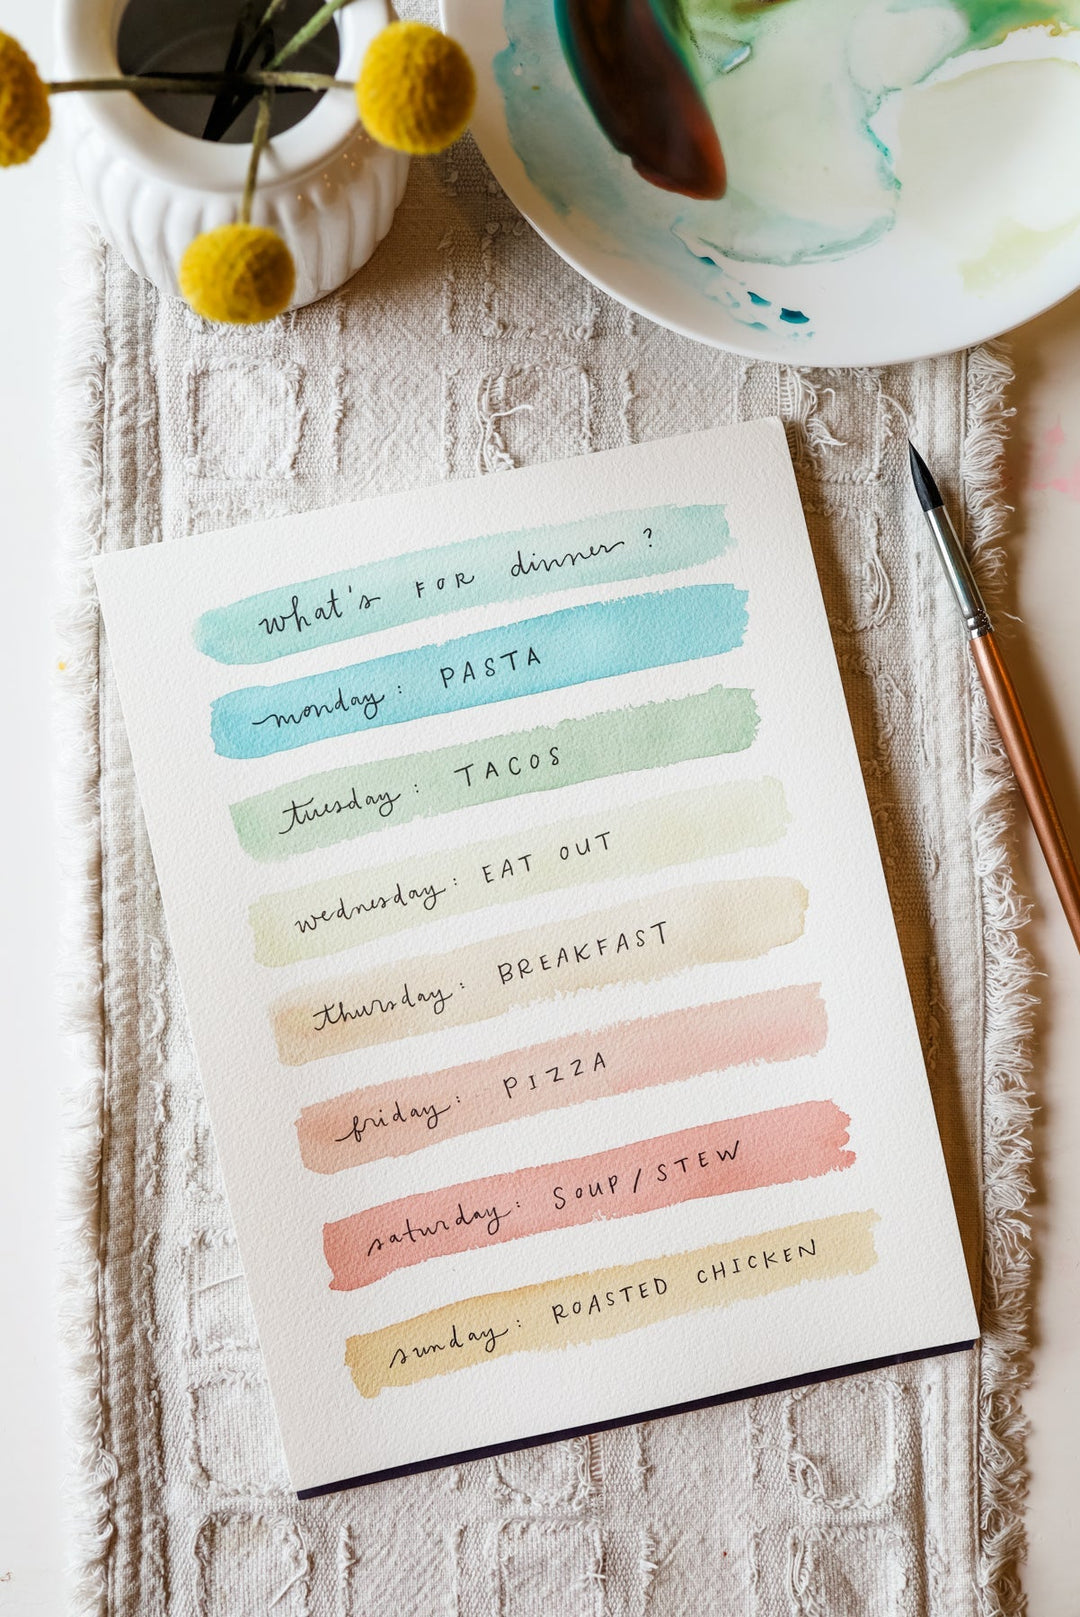 what's FOR dinner?
monday: PASTA
tuesday: TACOS
wednesday: EAT OUT
thursday: BREAKFAST
friday: PIZZA
saturday: SOUP/STEW
sunday: ROASTED CHICKEN